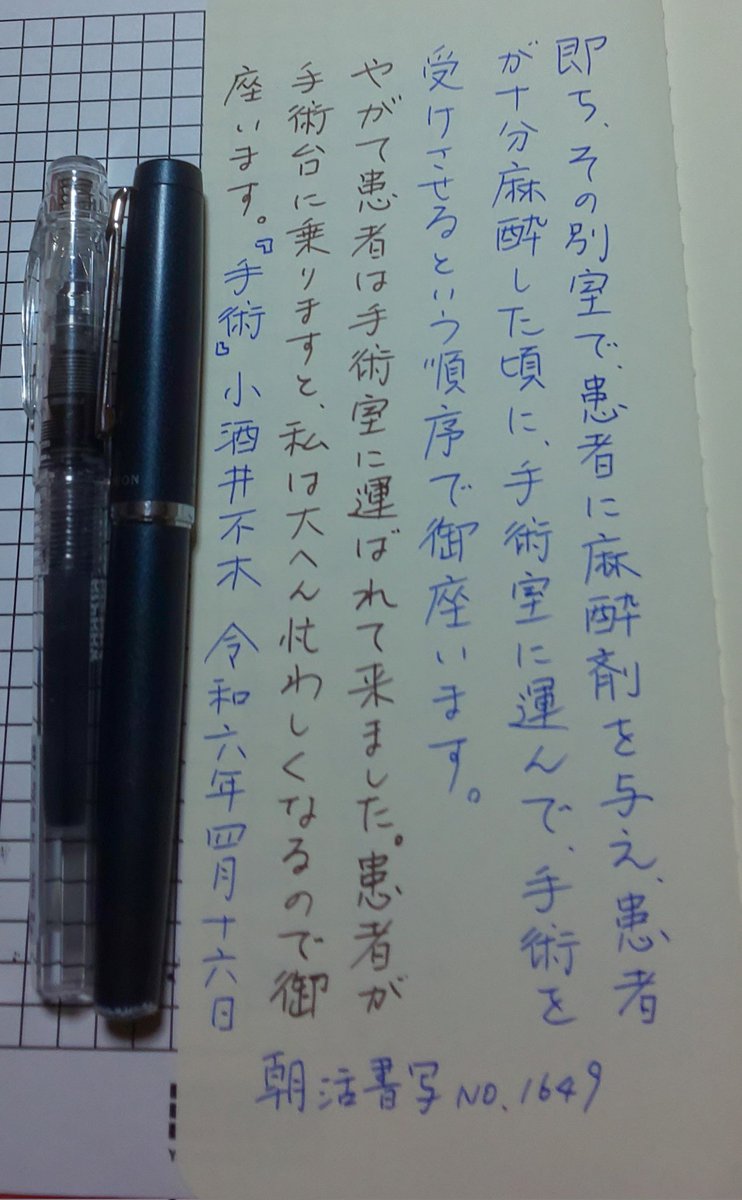 即ち、その別室で、患者に麻酔剤を与え、患者
が十分麻酔した頃に、手術室に運んで、手術を
受けさせるという順序で御座います。
やがて患者は手術室に運ばれて来ました。患者が
手術台に乗りますと、私は大へん忙わしくなるので御
座います。『手術』小酒井不木 令和六年四月十六日
朝活書写 NO.1649